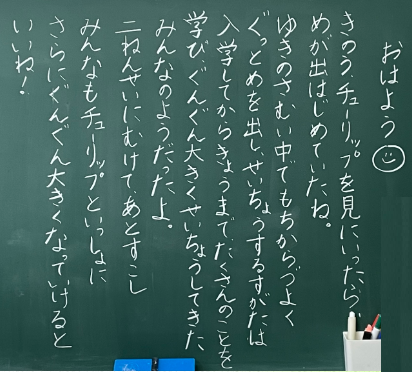 おはよう
きのう、チューリップを見にいったら、
めが出はじめていたね。
ゆきのさむい中でもちからづよく
ぐっとめを出し、せいちょうするすがたは
入学してからきょうまで、たくさんのことを
学び、ぐんぐん大きくせいちょうしてきた
みんなのようだったよ。
二ねんせいにむけて、あとすこし
みんなもチューリップといっしょに
さらにぐんぐん大きくなっていけると
いいね！